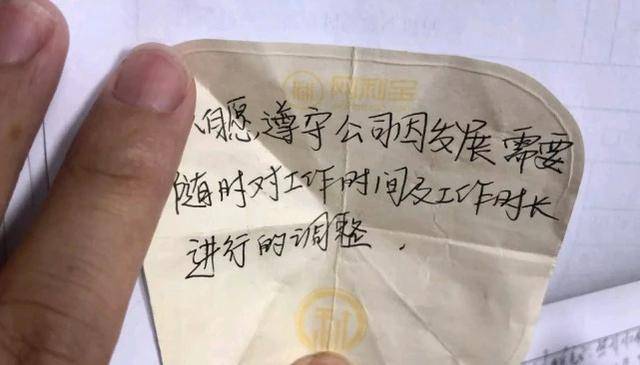 网利宝
自愿遵守公司因发展需要
随时对工作时间及工作时长
进行的调整.
利